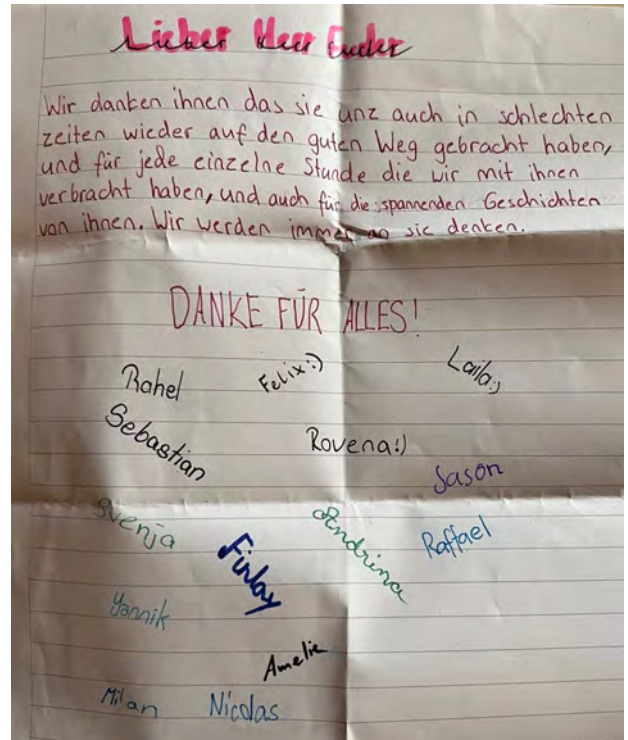 Lieber Herr Euder
Wir danken ihnen das sie unz auch in schlechten
zeiten wieder auf den guten Weg gebracht haben,
und für jede einzelne Stunde die wir mit ihnen
verbracht haben, und auch für die spannenden Geschichten
von ihnen. Wir werden immer an sie denken.
DANKE FÜR ALLES!
Rahel
Felix:)
Laila:)
Sebastian
Rovena:)
Jason
Svenja
Finlay
Andrina
Raffael
Yannik
Amelie
Milan
Nicolas